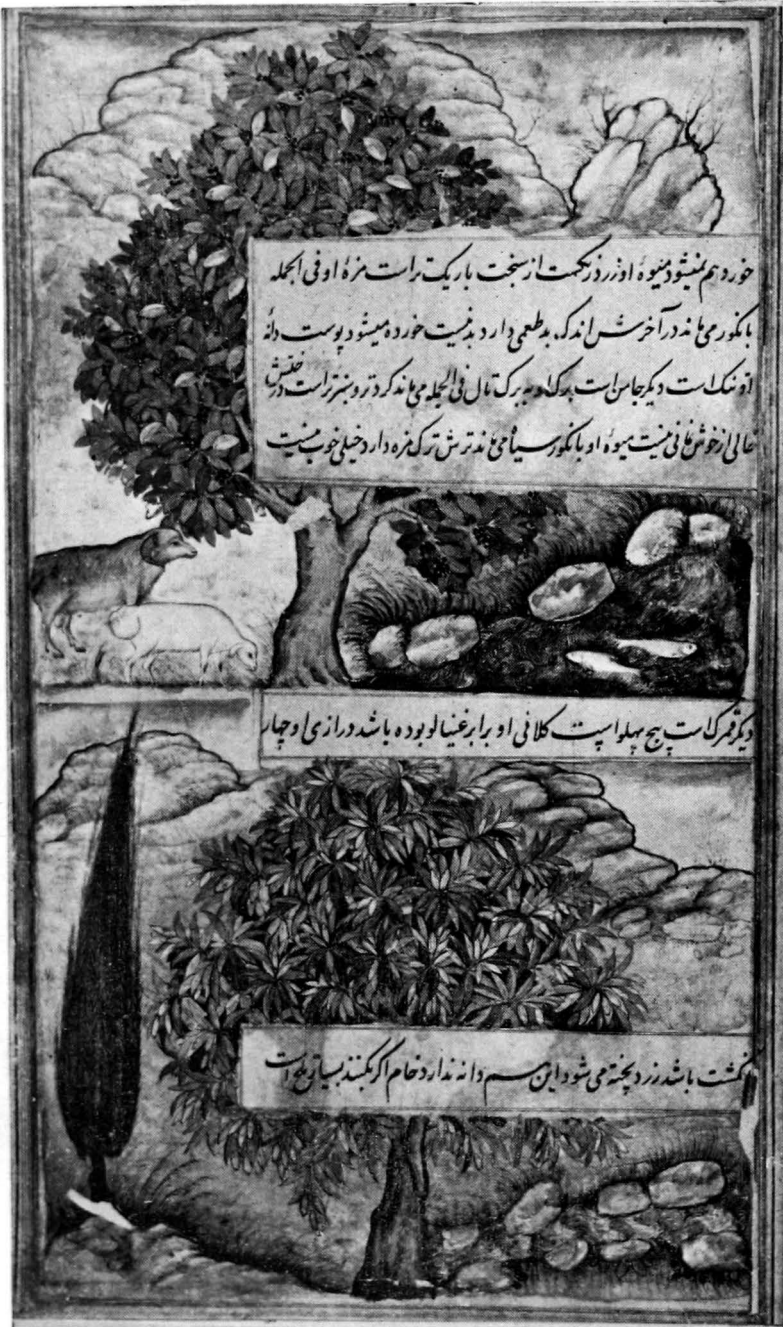 خورد هم میشود میوهٔ او زرد رنگست از سنجت باریک تراست مزهٔ او فی الجمله
بانکور می ماند در آخرش اندک بدطعمی دارد بد نیست خورده میشود پوست دانهٔ
او تنک است دیکر جامن است برک او به برک تال فی الجمله می ماند کرد تر و سبزتر است درختش
خالی از خوش نمائی نیست میوهٔ او بانکور سیاه می ماند ترش ترک مزه دارد خیلی خوب نیست
دیکر قمرک است پنج پهلو است کلانی او برابر غنیالو بوده باشد درازی او چهار
انکشت باشد زرد پخته می شود این هم دانه ندارد خام اکر بکنند بسیار تلخ است